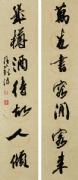 萬卷書容閒客
樽酒待故人傾